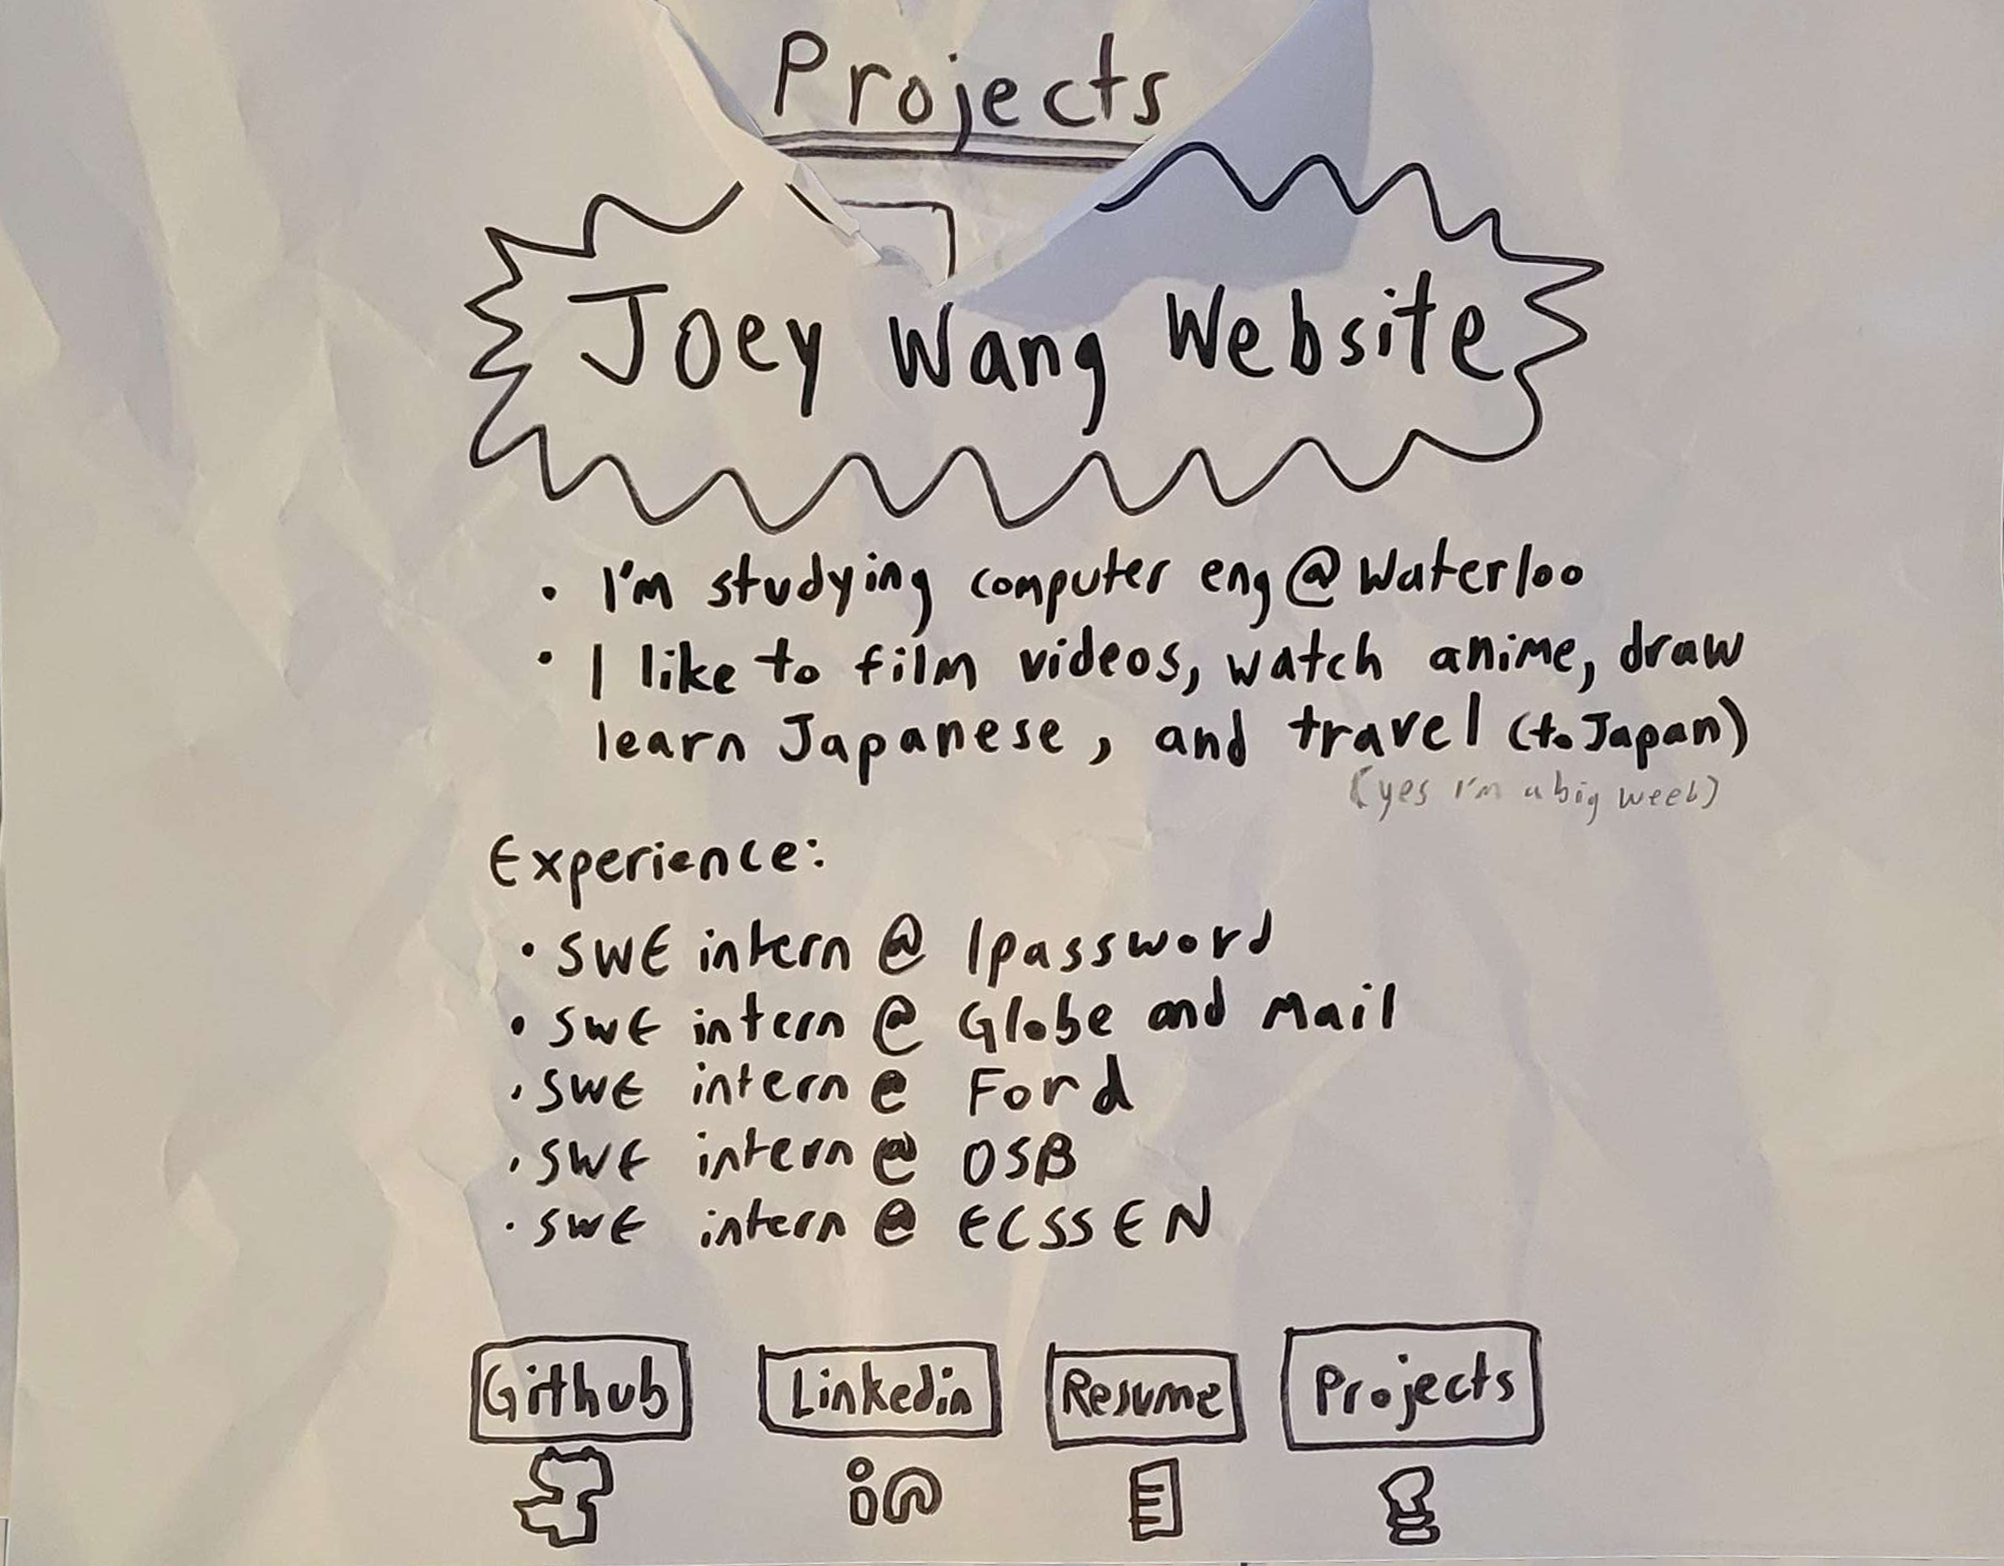 Projects
Joey Wang Website
• I'm studying computer eng @ Waterloo
• I like to film videos, watch anime, draw
learn Japanese, and travel (to Japan)
(yes I'm a big weeb)
Experience:
• SWE intern @ 1password
• SWE intern @ Globe and Mail
• SWE intern @ Ford
• SWE intern @ OSB
• SWE intern @ ECSSEN
Github Linkedin Resume Projects
in